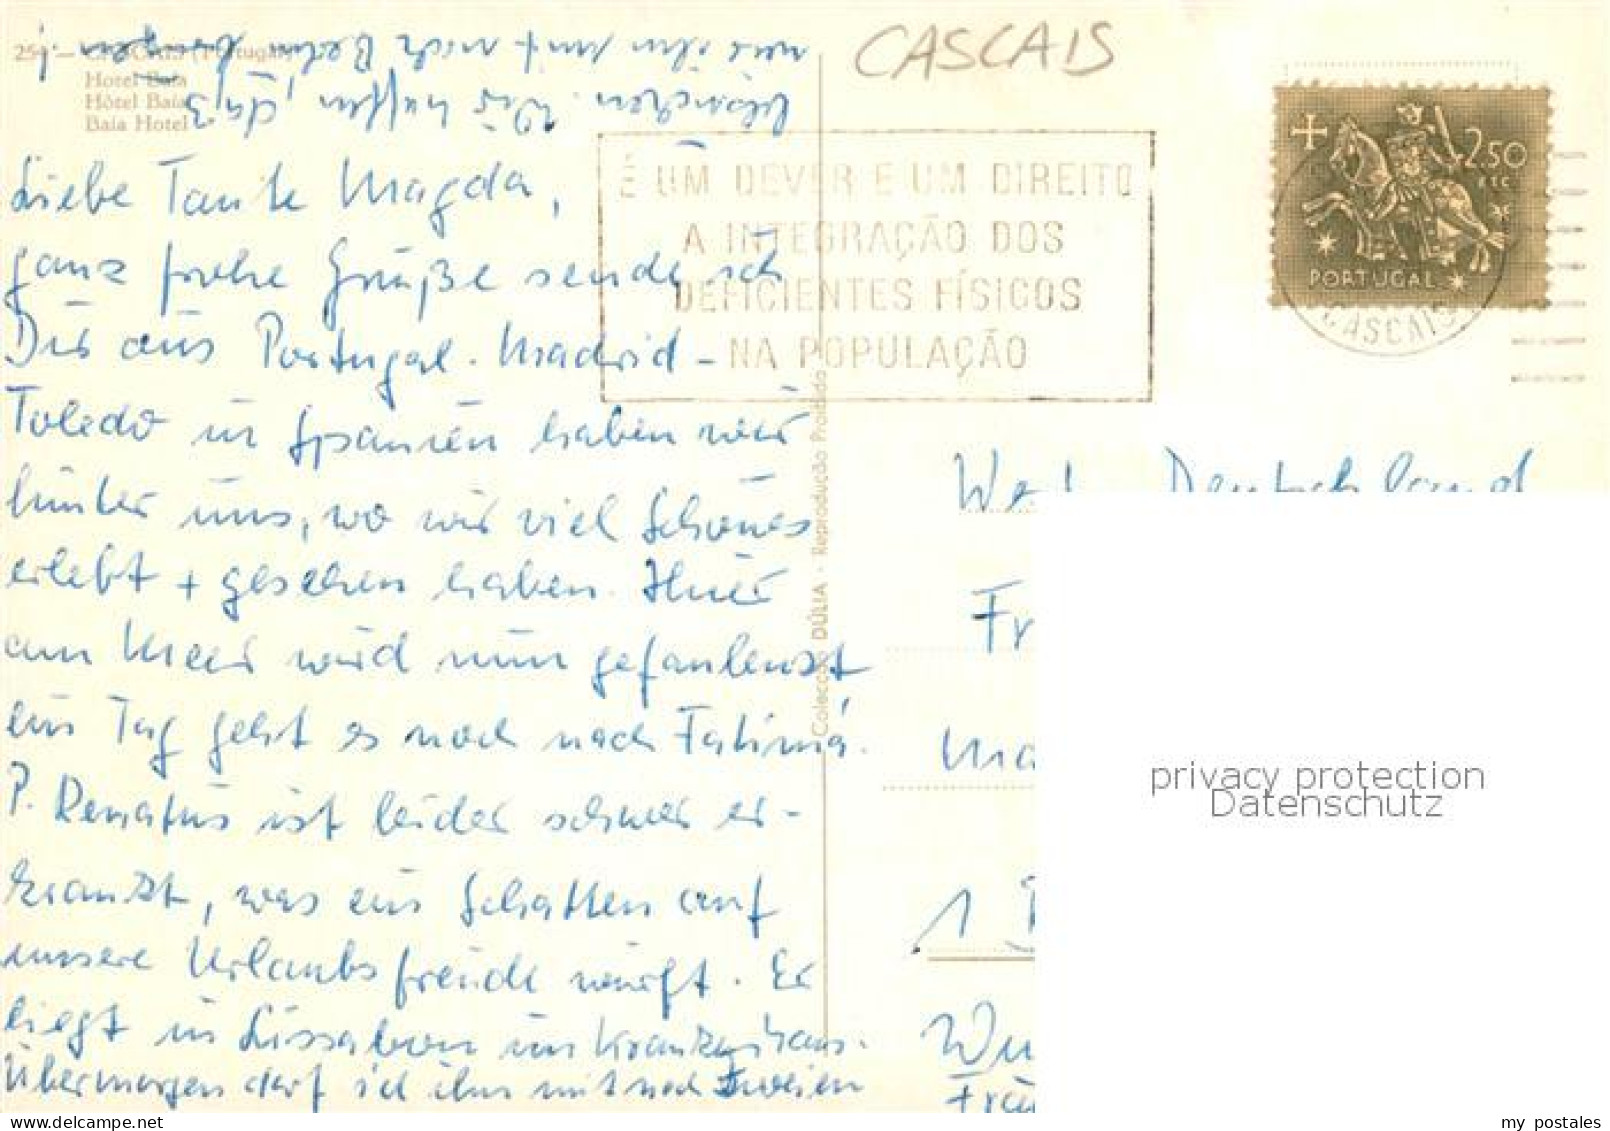 254 — CASCAIS (Portugal)
Hotel Baía
Hôtel Baía
Baía Hotel
CASCAIS
É UM DEVER E UM DIREITO
A INTEGRAÇÃO DOS
DEFICIENTES FÍSICOS
NA POPULAÇÃO
2$50
PORTUGAL
CASCAIS
Liebe Tante Magda,
ganz frohe Grüße sende ich
Dir aus Portugal. Madrid -
Toledo in Spanien haben wir
hinter uns, wo wir viel Schönes
erlebt + gesehen haben. Hier
am Meer wird nun gefaulenzt
ein Tag geht es noch nach Fatima.
P. Renatus ist leider schwer er-
krankt, was ein Schatten auf
unsere Urlaubsfreude wirft. Er
liegt in Lissabon im Krankenhaus.
Übermorgen darf ich ihn mit noch zweien
besuchen. Wir hoffen, daß
wir ihn mit nach
Colecção DÚLIA - Reprodução Proibida
West Deutschland
Fr
Ma
1
Wu
privacy protection
Datenschutz
my postales